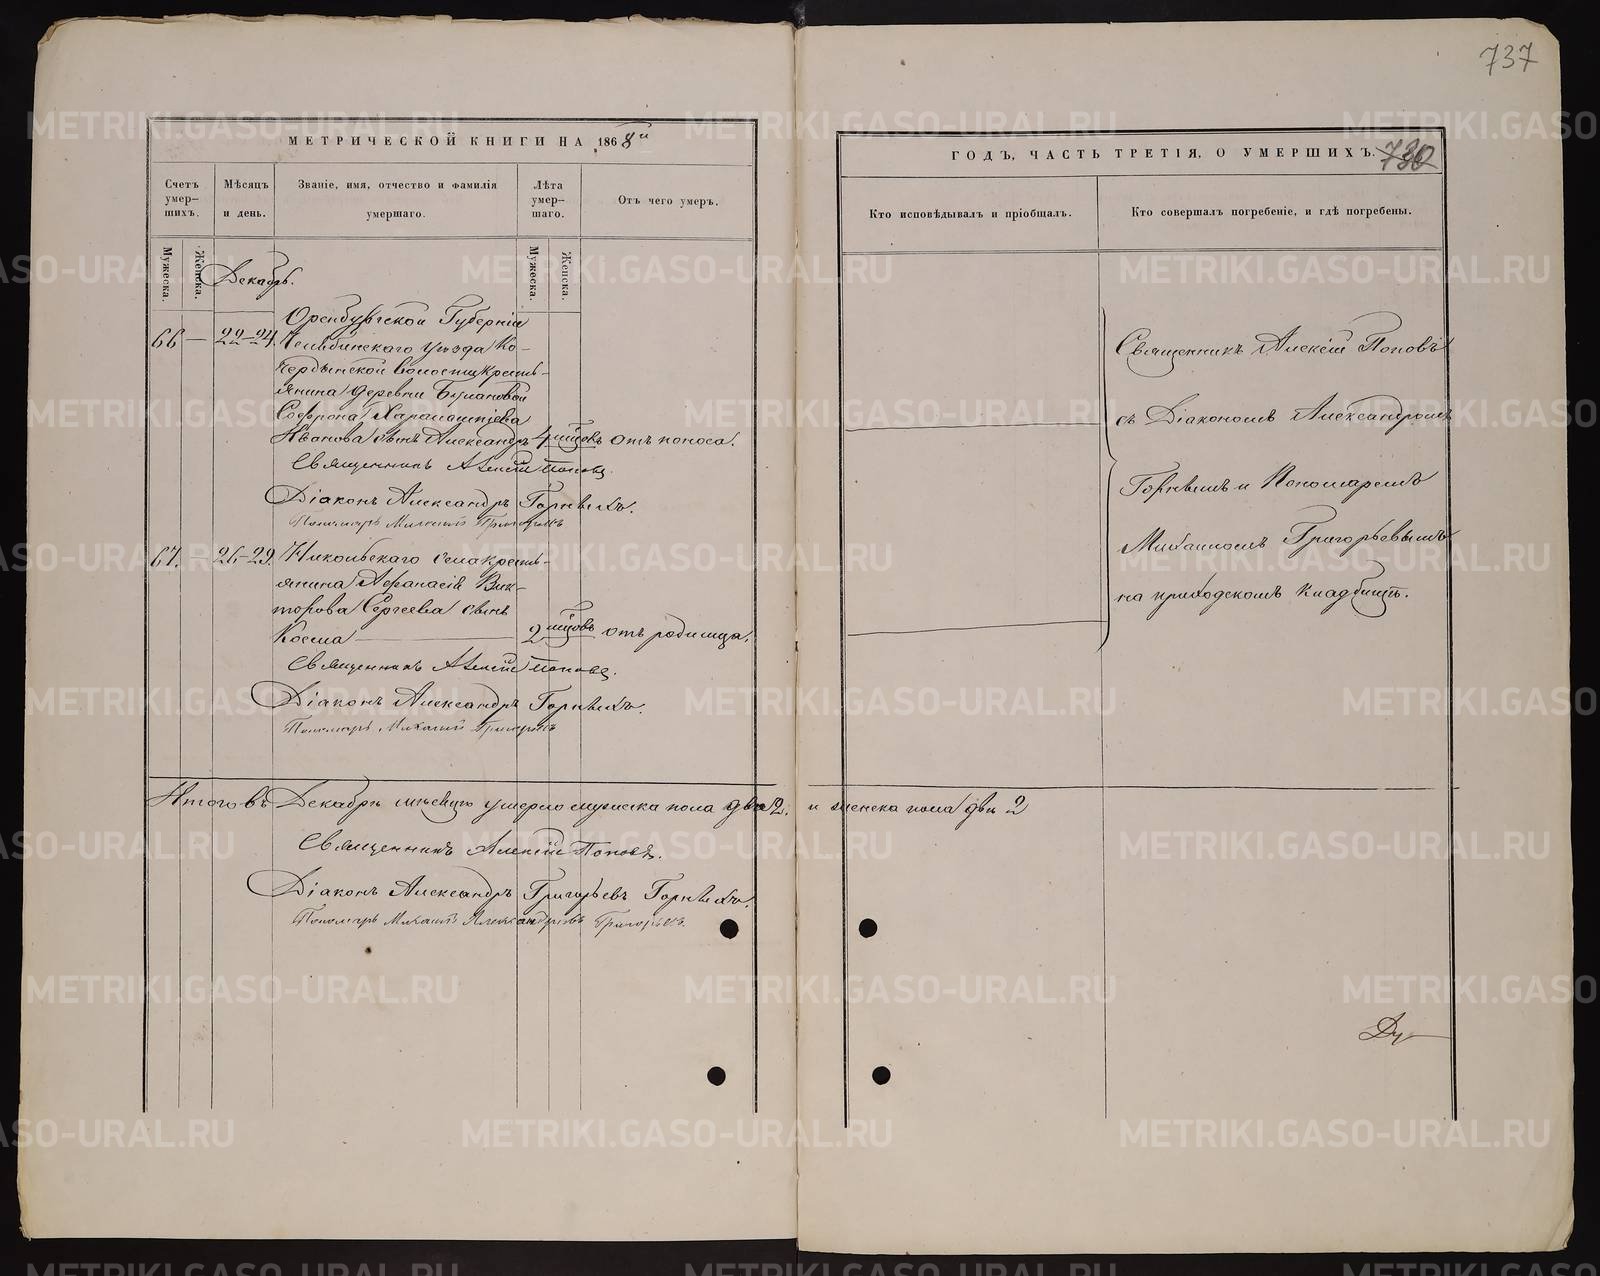 737
МЕТРИЧЕСКОЙ КНИГИ НА 1868й
ГОДЪ, ЧАСТЬ ТРЕТІЯ, О УМЕРШИХЪ.
730
Счетъ умер-шихъ.
Мѣсяцъ и день.
Званіе, имя, отчество и фамилія умершаго.
Лѣта умер-шаго.
Отъ чего умеръ.
Кто исповѣдывалъ и пріобщалъ.
Кто совершалъ погребеніе, и гдѣ погребены.
Мужеска.
Женска.
Мужеска.
Женска.
Декабрь.
Оренбургской Губерніи
66 — 22-24. Челябинскаго уѣзда Ко-
чердыкской волости крестъ-
янина деревни
Софрона Харлампіева
Иванова сынъ Александръ 4 мцовъ отъ поноса.
Священникъ Алексій Поповъ
Діаконъ Александръ Горныхъ.
Пономарь Михаилъ Григорьевъ
67. 26-29. Никольскаго села кресть-
янина Афанасія Вик-
торова Сергеева сынъ
Косма 2 мцовъ отъ родимца.
Священникъ Алексій Поповъ.
Діаконъ Александръ Горныхъ.
Пономарь Михаилъ Григорьевъ
Священникъ Алексій Поповъ
съ Діакономъ Александромъ
Горныхъ и Пономаремъ
Михаиломъ Григорьевымъ
на приходскомъ кладбищѣ.
Итого въ Декабрѣ мѣсяцѣ умерло мужеска пола два 2. и женска пола двѣ 2
Священникъ Алексій Поповъ.
Діаконъ Александръ Григорьевъ Горныхъ.
Пономарь Михаилъ Александровъ Григорьевъ.
METRIKI.GASO-URAL.RU